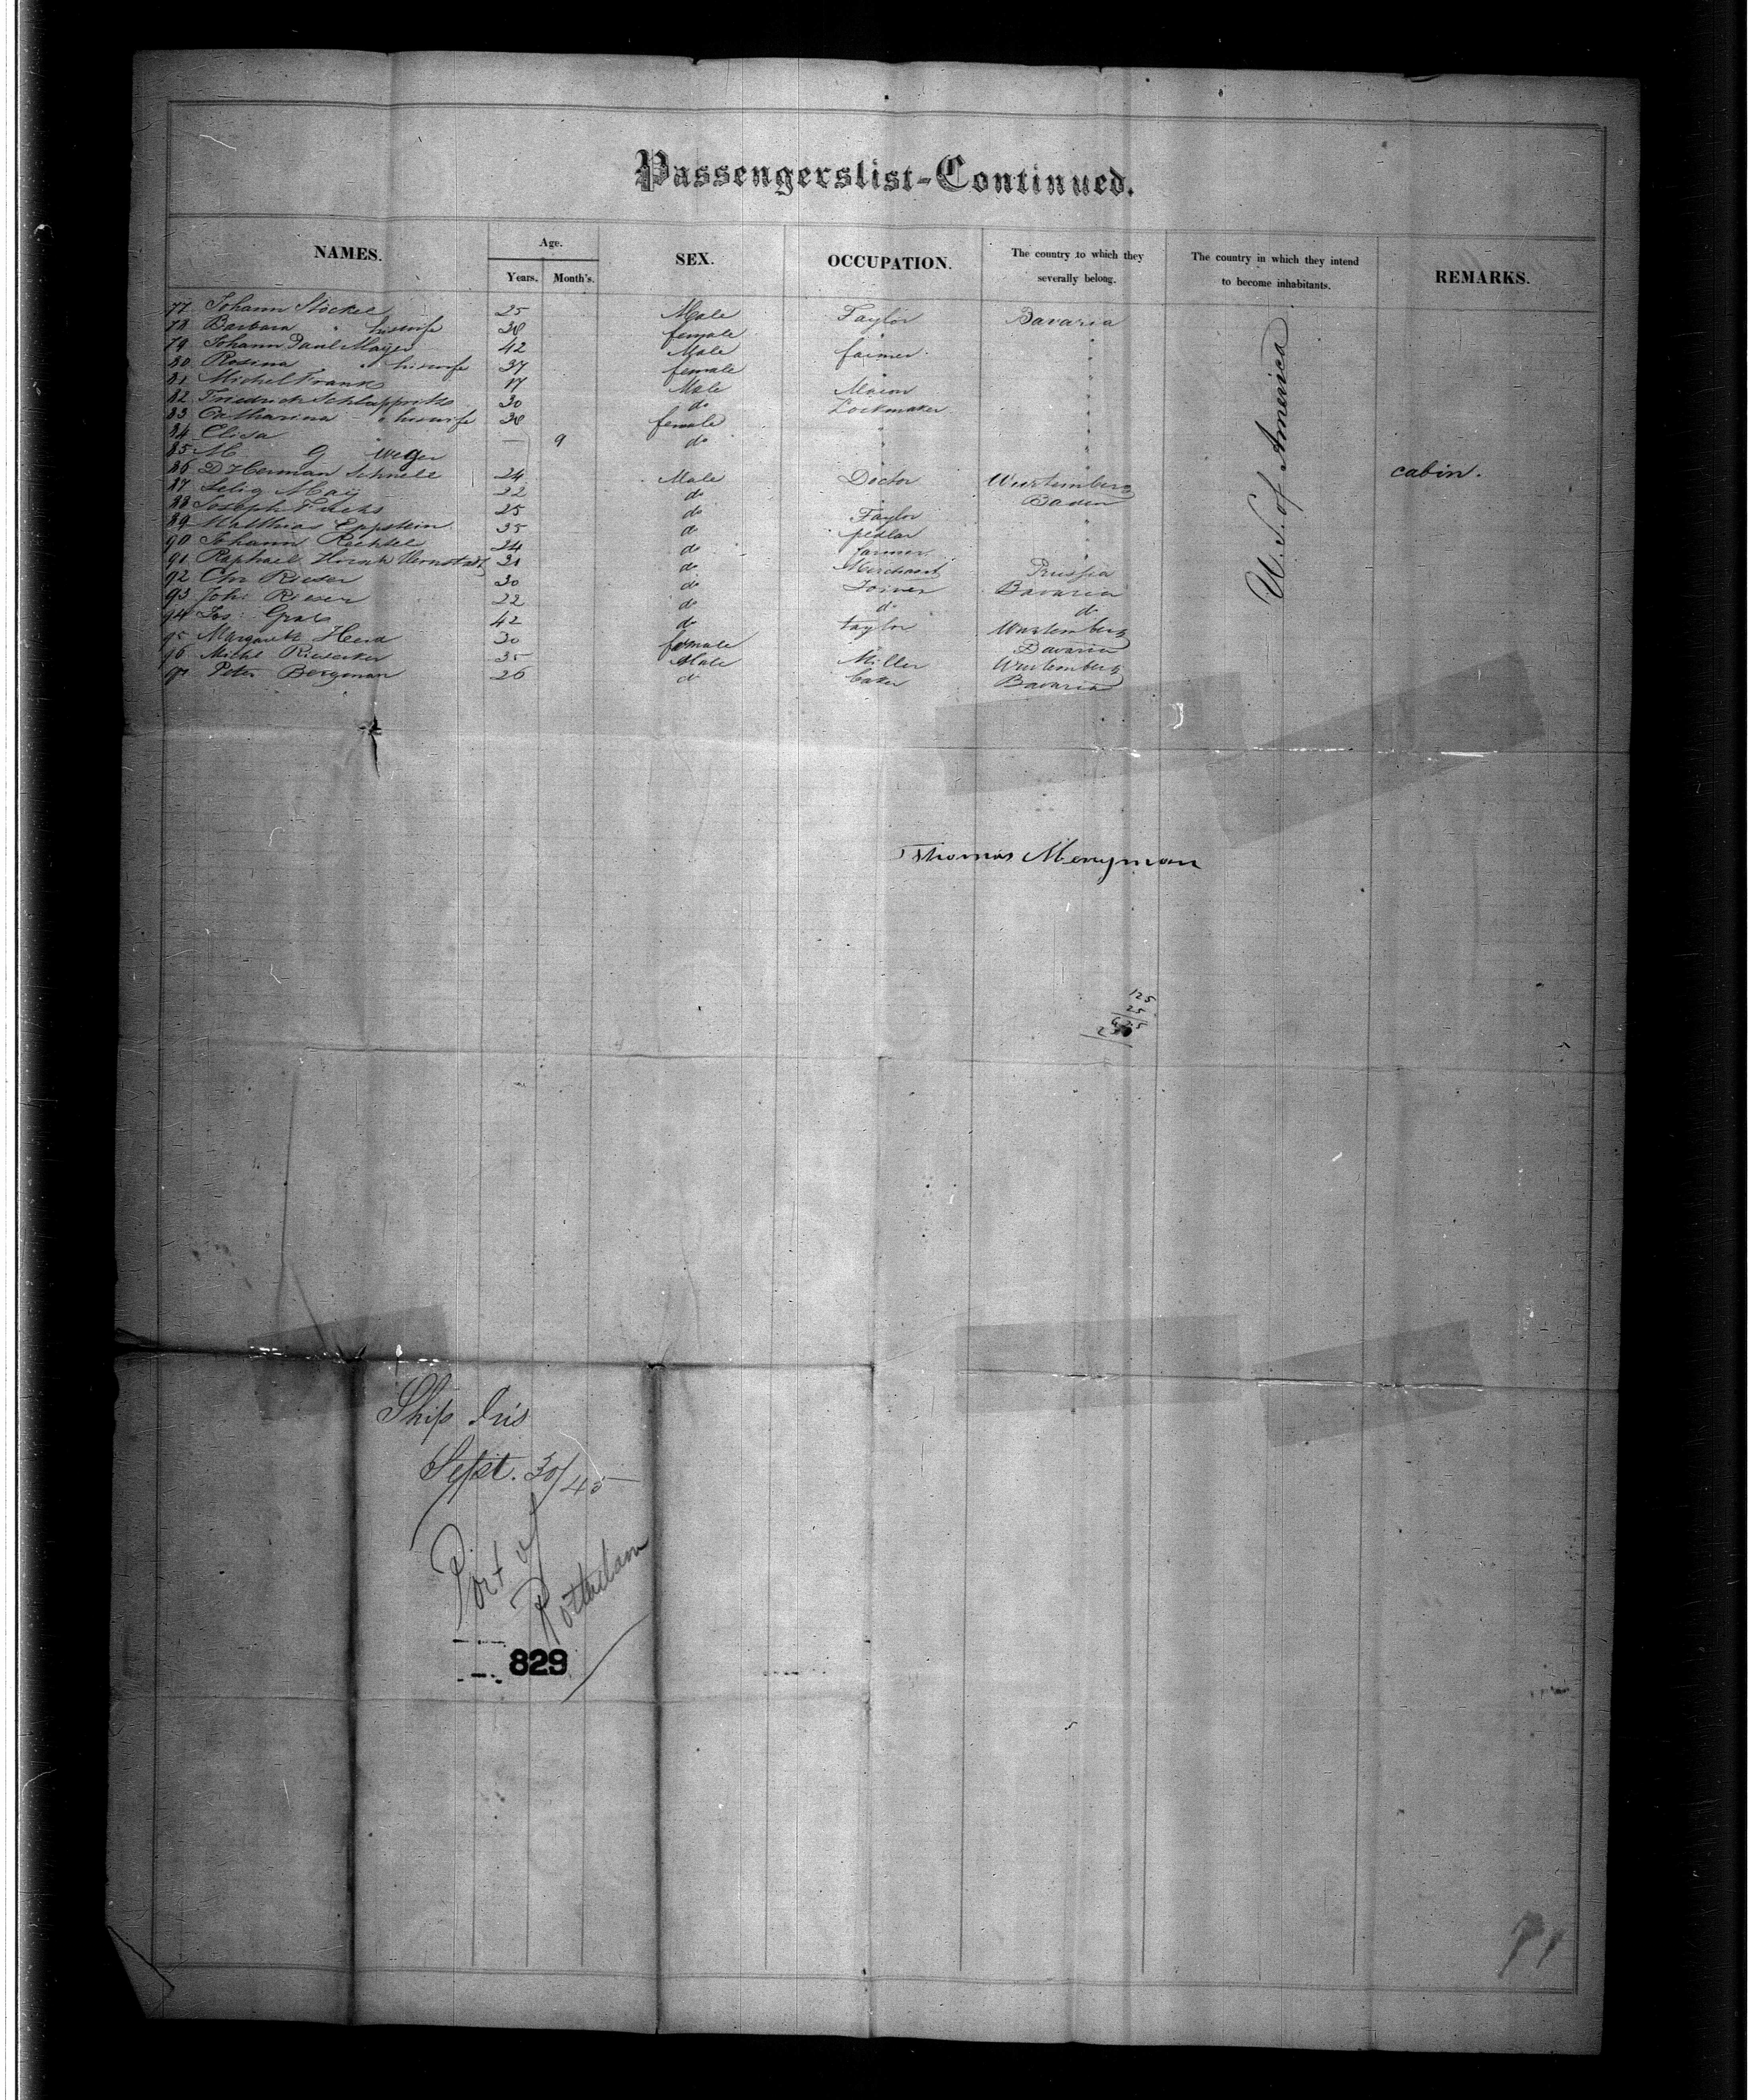 Passengerslist-Continued.
NAMES. Age. SEX. OCCUPATION. The country to which they severally belong. The country in which they intend to become inhabitants. REMARKS.
Years. Month's.
77 Johann Stöckel 25 Male Taylor Bavaria
78 Barbara " his wife 38 female " "
79 Johann Paul Mayer 42 Male farmer "
80 Rosina " his wife 37 female " "
81 Michel Frank 17 Male Mason "
82 Friedrich 30 do Lockmaker "
83 Catharina " his wife 38 female " "
84 Elisa " — 9 do " "
85 M G Weger
86 D Herman Schnell 24 Male Doctor Wurtemberg cabin.
87 Selig May 22 do " Baden
88 Joseph Fuchs 25 do Taylor "
89 Matthias Eppstein 35 do pedlar "
90 Johann 24 do farmer "
91 Raphael 31 do Merchant Prussia
92 Chr Rieser 30 do Joiner Bavaria
93 Joh: Rieser 22 do do do
94 42 do taylor Wurtemberg
95 Margareth 30 female Bavaria
96 Michl 35 Male Miller Wurtemberg
97 Peter Bergman 26 do baker Bavaria
U. S. of America
Thomas Merryman
125
25
625
250
Ship Iris
Sept. 30/45
Port of
Rotterdam
829